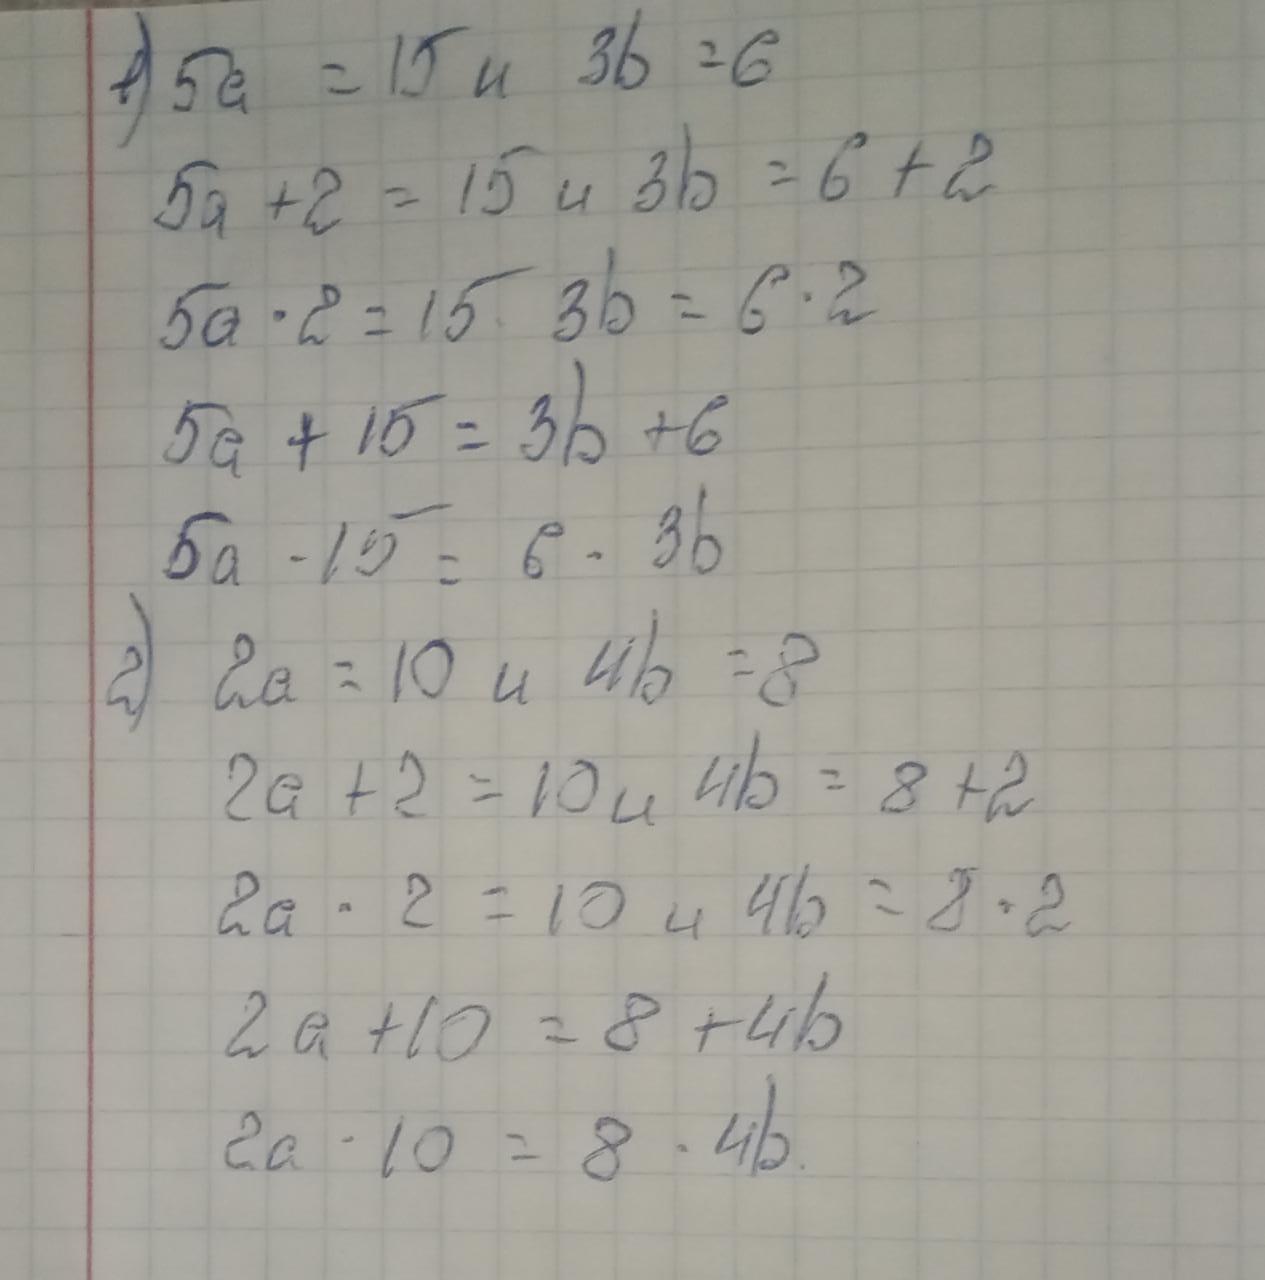 1) 5a = 15 и 3b = 6
5a + 2 = 15 и 3b = 6 + 2
5a · 2 = 15 3b = 6 · 2
5a + 15 = 3b + 6
5a - 15 = 6 - 3b
2) 2a = 10 и 4b = 8
2a + 2 = 10 и 4b = 8 + 2
2a · 2 = 10 и 4b = 8 · 2
2a + 10 = 8 + 4b
2a · 10 = 8 · 4b.